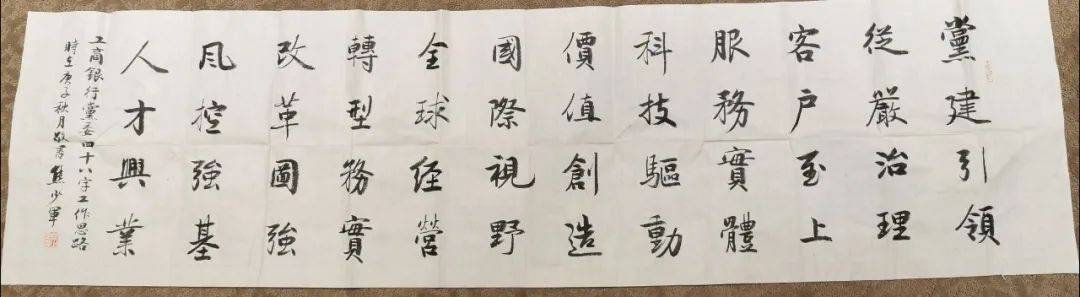 黨建引領
從嚴治理
客户至上
服務實體
科技驅動
價值創造
國際視野
全球经營
轉型務實
改革圖強
风控強基
人才興業
工商銀行黨委四十八字工作思路
時在庚子秋月敬書熊少軍